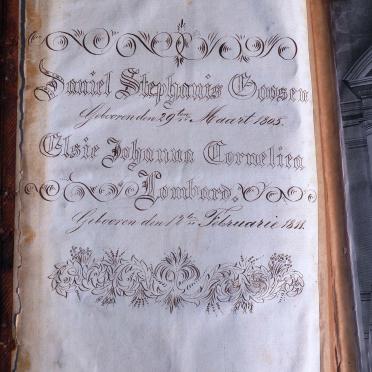 Daniel Stephanis Goosen
Geboren den 29ten Maart 1805.
Elsie Johanna Cornelira
Lombard.
Geboren den 12ten Februarie 1811.